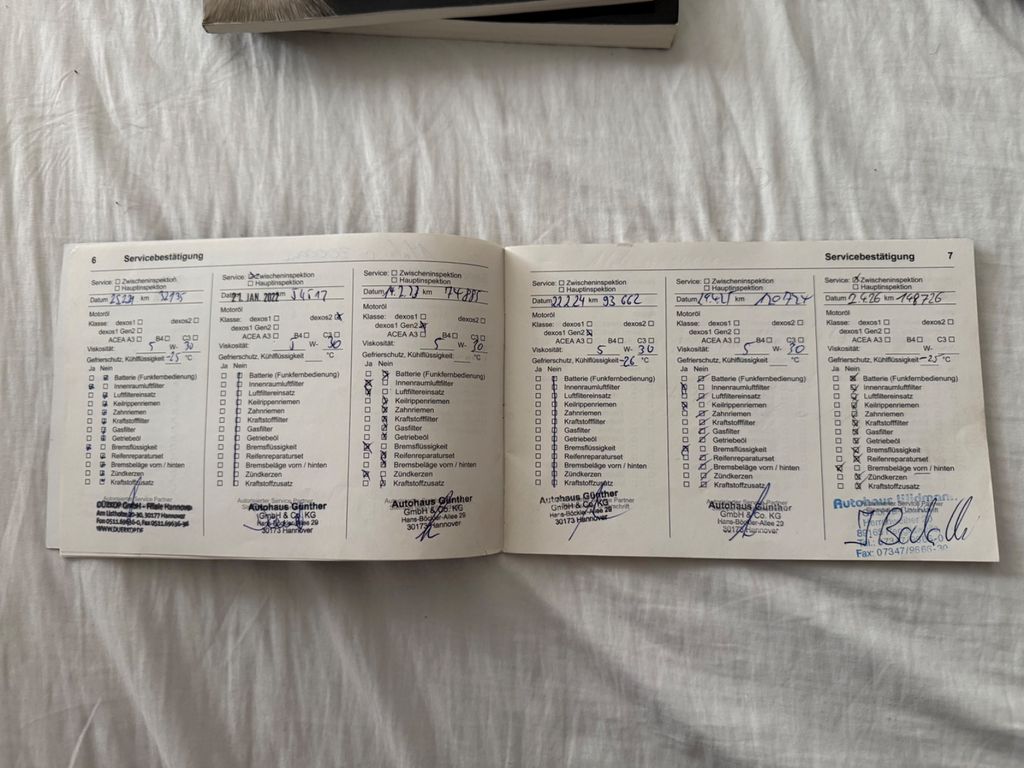 6 Servicebestätigung
Datum km
Motoröl
Klasse: dexos1
dexos1 Gen2
ACEA A3
Viskosität: 5 W- 30
Gefrierschutz, Kühlflüssigkeit -25 °C
Ja Nein
Batterie (Funkfernbedienung)
Innenraumluftfilter
Luftfiltereinsatz
Keilrippenriemen
Zahnriemen
Kraftstofffilter
Gasfilter
Getriebeöl
Bremsflüssigkeit
Reifenreparaturset
Bremsbeläge vorn / hinten
Zündkerzen
Kraftstoffzusatz
DÜRKOP GmbH – Filiale Hannover
30177 Hannover
WWW.DUERKOP.TV
Service: Zwischeninspektion
Hauptinspektion
21. JAN. 2022 km 54517
dexos2
B4 C3
W- 30
°C
Autorisierter Service Partner
Autohaus Günther
GmbH & Co. KG
Hans-Böckler-Allee 29
30173 Hannover
Service: Zwischeninspektion
Hauptinspektion
Datum km
Motoröl
Klasse: dexos1 dexos2
dexos1 Gen2
ACEA A3 B4 C3
Viskosität: 5 W- 30
Gefrierschutz, Kühlflüssigkeit °C
Ja Nein
Batterie (Funkfernbedienung)
Innenraumluftfilter
Luftfiltereinsatz
Keilrippenriemen
Zahnriemen
Kraftstofffilter
Gasfilter
Getriebeöl
Bremsflüssigkeit
Reifenreparaturset
Bremsbeläge vorn / hinten
Zündkerzen
Kraftstoffzusatz
Autohaus Günther
GmbH & Co. KG
Hans-Böckler-Allee 29
30173 Hannover
Servicebestätigung 7
Service: Zwischeninspektion
Hauptinspektion
Datum 22.2.24 km 93 662
Motoröl
Klasse: dexos1
dexos1 Gen2
ACEA A3
Viskosität: 5 W- 30
Gefrierschutz, Kühlflüssigkeit -26 °C
Ja Nein
Batterie (Funkfernbedienung)
Innenraumluftfilter
Luftfiltereinsatz
Keilrippenriemen
Zahnriemen
Kraftstofffilter
Gasfilter
Getriebeöl
Bremsflüssigkeit
Reifenreparaturset
Bremsbeläge vorn / hinten
Zündkerzen
Kraftstoffzusatz
Autohaus Günther
GmbH & Co. KG
Hans-Böckler-Allee 29
30173 Hannover
Service: Zwischeninspektion
Hauptinspektion
Datum km
Motoröl
Klasse: dexos1 dexos2
dexos1 Gen2
ACEA A3 B4 C3
Viskosität: 5 W- 30
Gefrierschutz, Kühlflüssigkeit °C
Ja Nein
Batterie (Funkfernbedienung)
Innenraumluftfilter
Luftfiltereinsatz
Keilrippenriemen
Zahnriemen
Kraftstofffilter
Gasfilter
Getriebeöl
Bremsflüssigkeit
Reifenreparaturset
Bremsbeläge vorn / hinten
Zündkerzen
Kraftstoffzusatz
Autorisierter Service Partner
Autohaus Günther
GmbH & Co. KG
Hans-Böckler-Allee 29
30173 Hannover
Service: Zwischeninspektion
Hauptinspektion
Datum 2.4.26 km 148726
Motoröl
Klasse: dexos1 dexos2
dexos1 Gen2
ACEA A3 B4 C3
Viskosität: W-
Gefrierschutz, Kühlflüssigkeit -25 °C
Ja Nein
Batterie (Funkfernbedienung)
Innenraumluftfilter
Luftfiltereinsatz
Keilrippenriemen
Zahnriemen
Kraftstofffilter
Gasfilter
Getriebeöl
Bremsflüssigkeit
Reifenreparaturset
Bremsbeläge vorn / hinten
Zündkerzen
Kraftstoffzusatz
Autohaus
Fax: 07347/9666-30